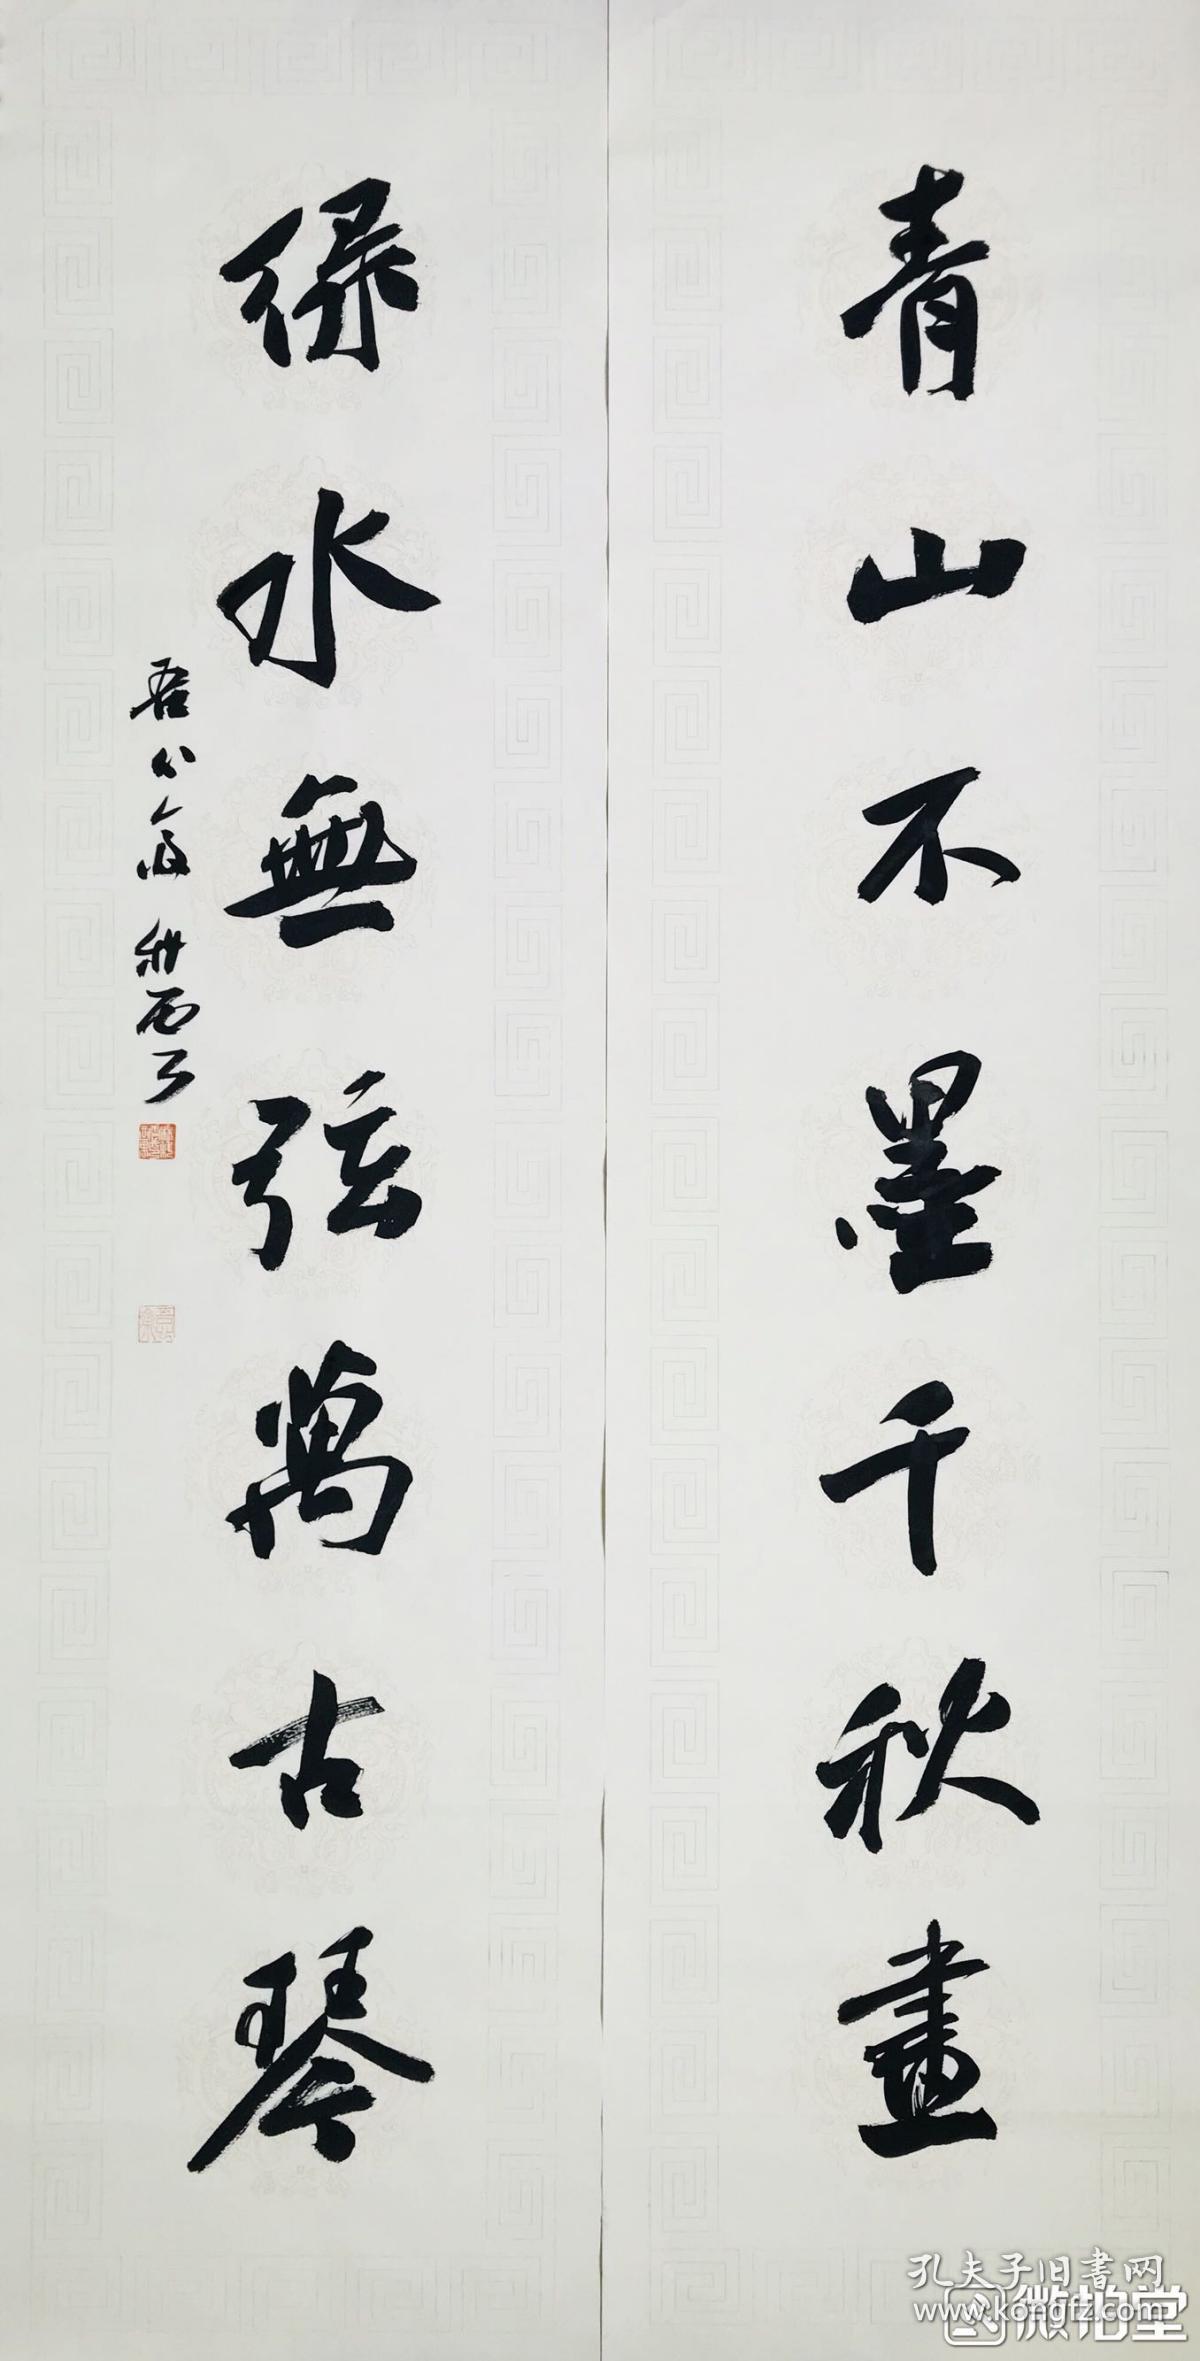 青山不墨千秋畫
綠水無弦萬古琴
孔夫子旧书网
www.kongfz.com
微拍堂